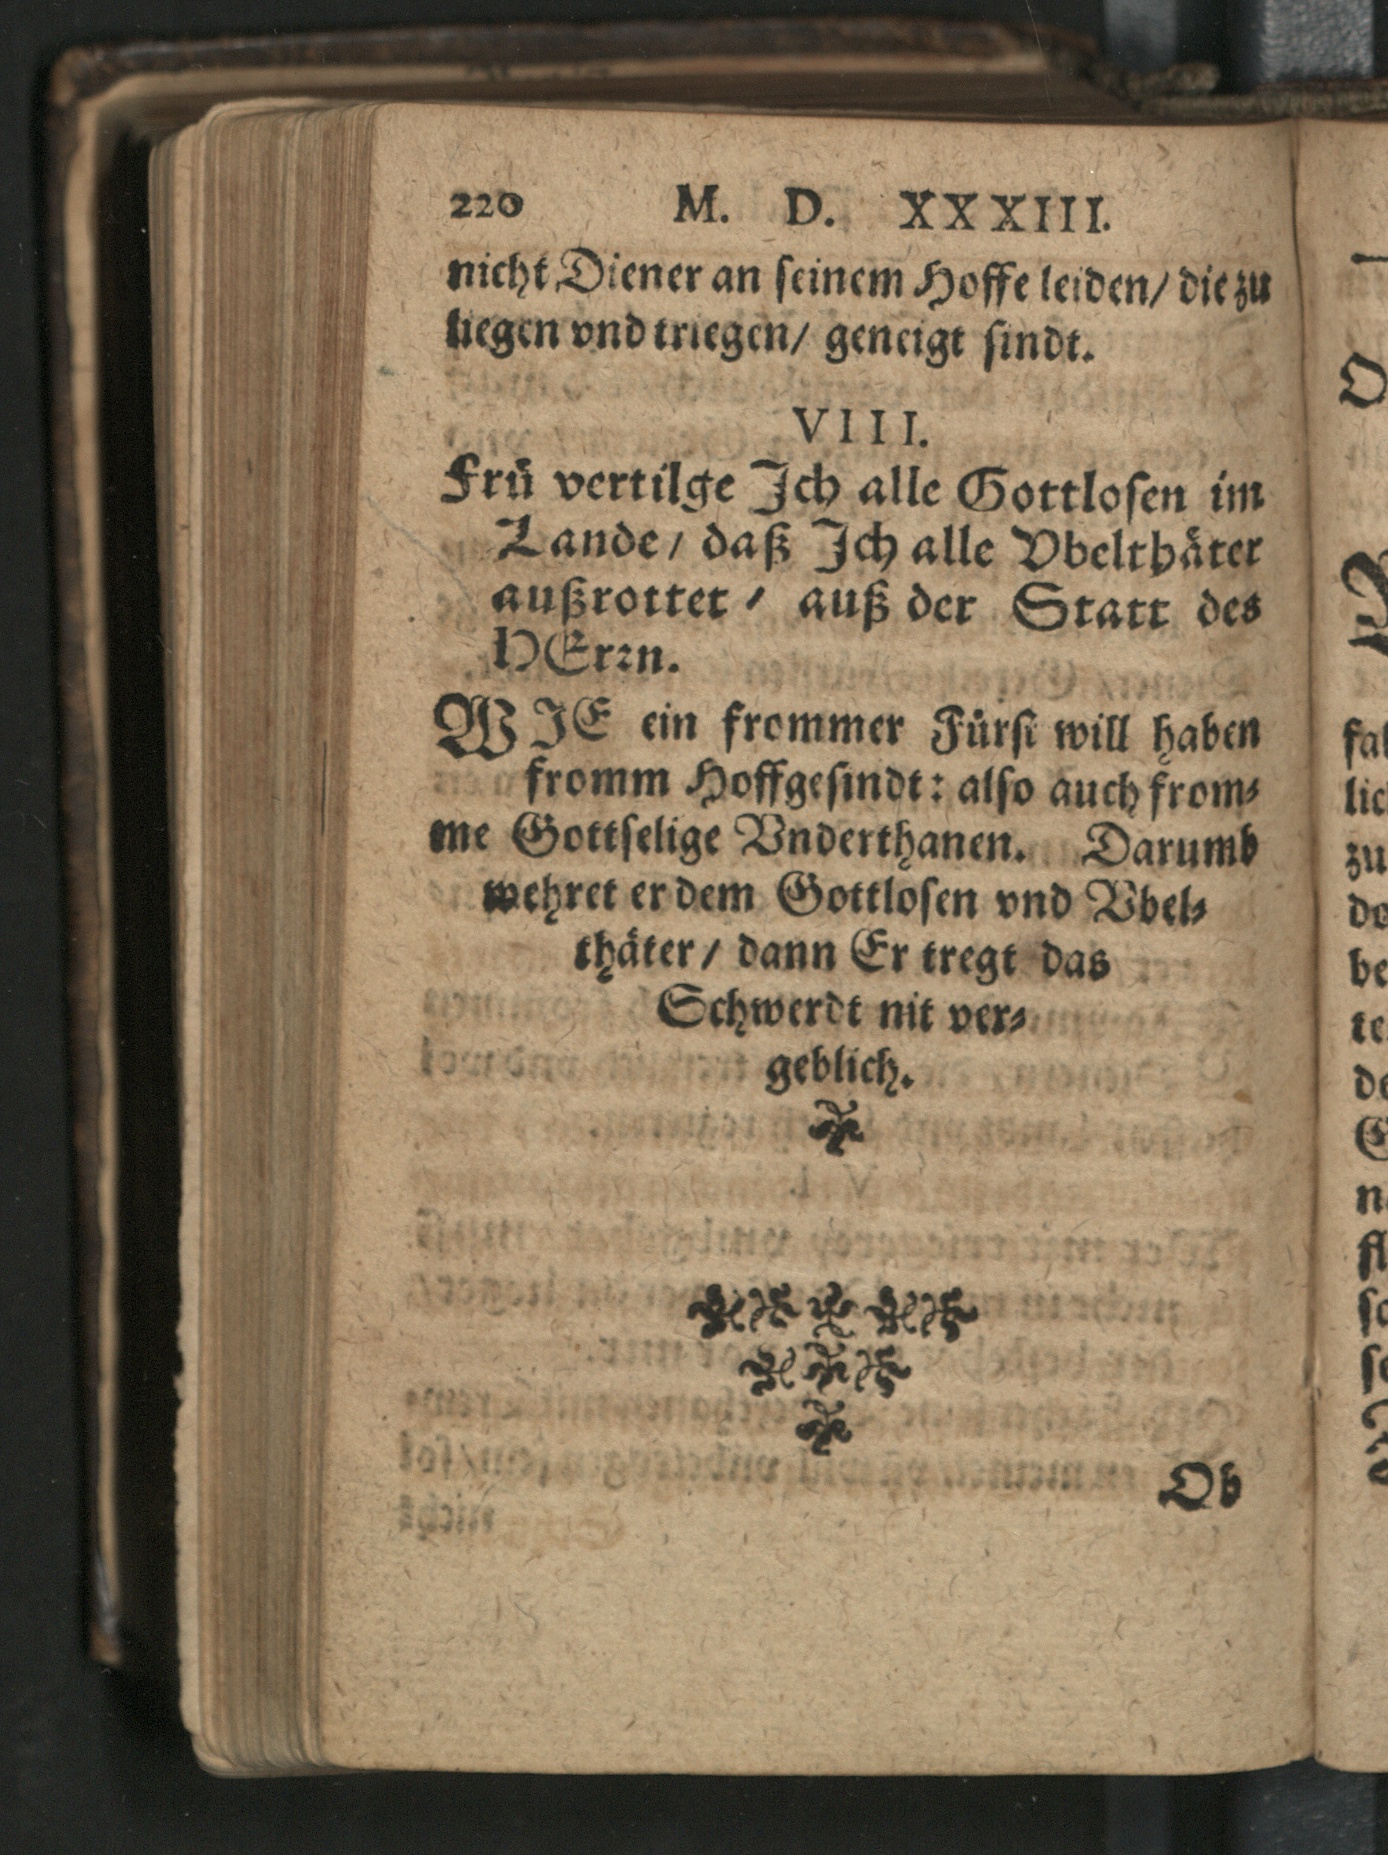 220 M. D. XXXIII.
nicht Diener an seinem Hoffe leiden/ die zu
liegen vnd triegen/ geneigt sindt.
VIII.
Frü vertilge Ich alle Gottlosen im
Lande/ daß Ich alle Vbelthäter
außrottet/ auß der Statt des
HErrn.
WIE ein frommer Fürst will haben
fromm Hoffgesindt: also auch from-
me Gottselige Vnderthanen. Darumb
wehret er dem Gottlosen vnd Vbel-
thäter/ dann Er tregt das
Schwerdt nit ver-
geblich.
Ob